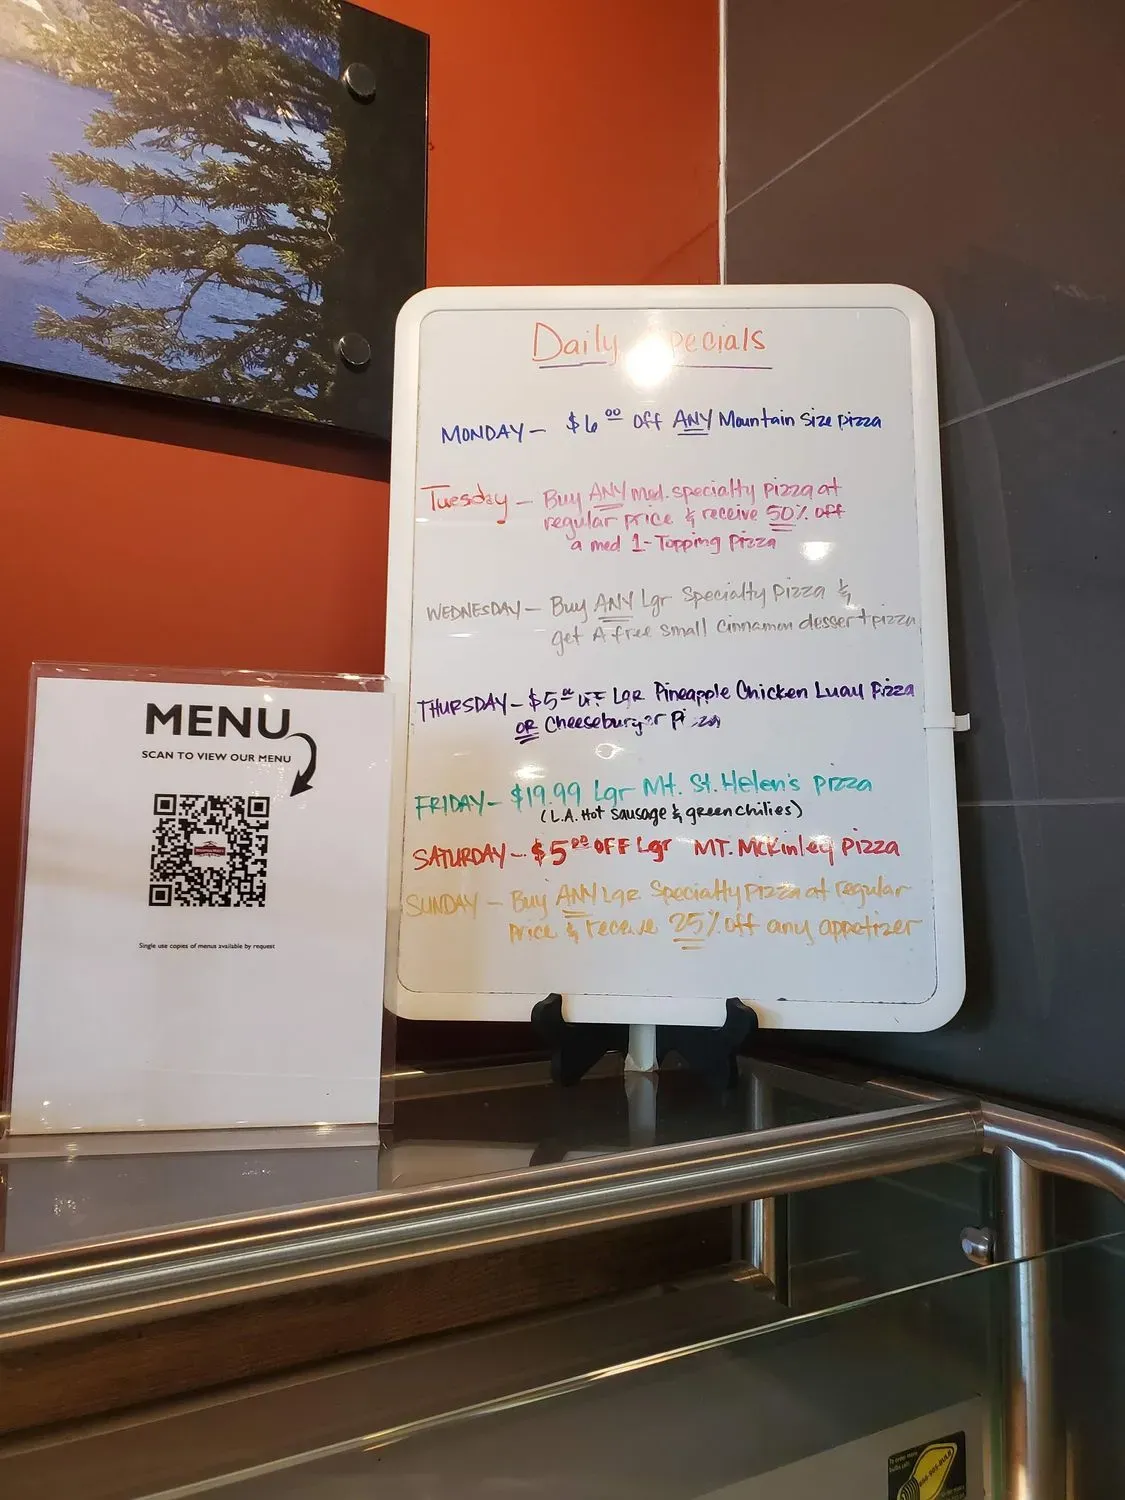 Daily Specials
MONDAY – $6.00 off ANY Mountain size pizza
Tuesday – Buy ANY med. specialty pizza at
regular price & receive 50% off
a med 1-Topping pizza
WEDNESDAY – Buy ANY Lgr Specialty pizza &
get A free small cinnamon dessert pizza
THURSDAY – $5.00 off Lgr Pineapple Chicken Luau Pizza
OR Cheeseburger Pizza
FRIDAY – $19.99 Lgr Mt. St. Helen's pizza
(L.A. Hot sausage & green chilies)
SATURDAY – $5.00 OFF Lgr MT. McKinley pizza
SUNDAY – Buy ANY Lgr Specialty pizza at regular
price & receive 25% off any appetizer
MENU
SCAN TO VIEW OUR MENU
Single use copies of menus available by request
To order more
bulbs call: